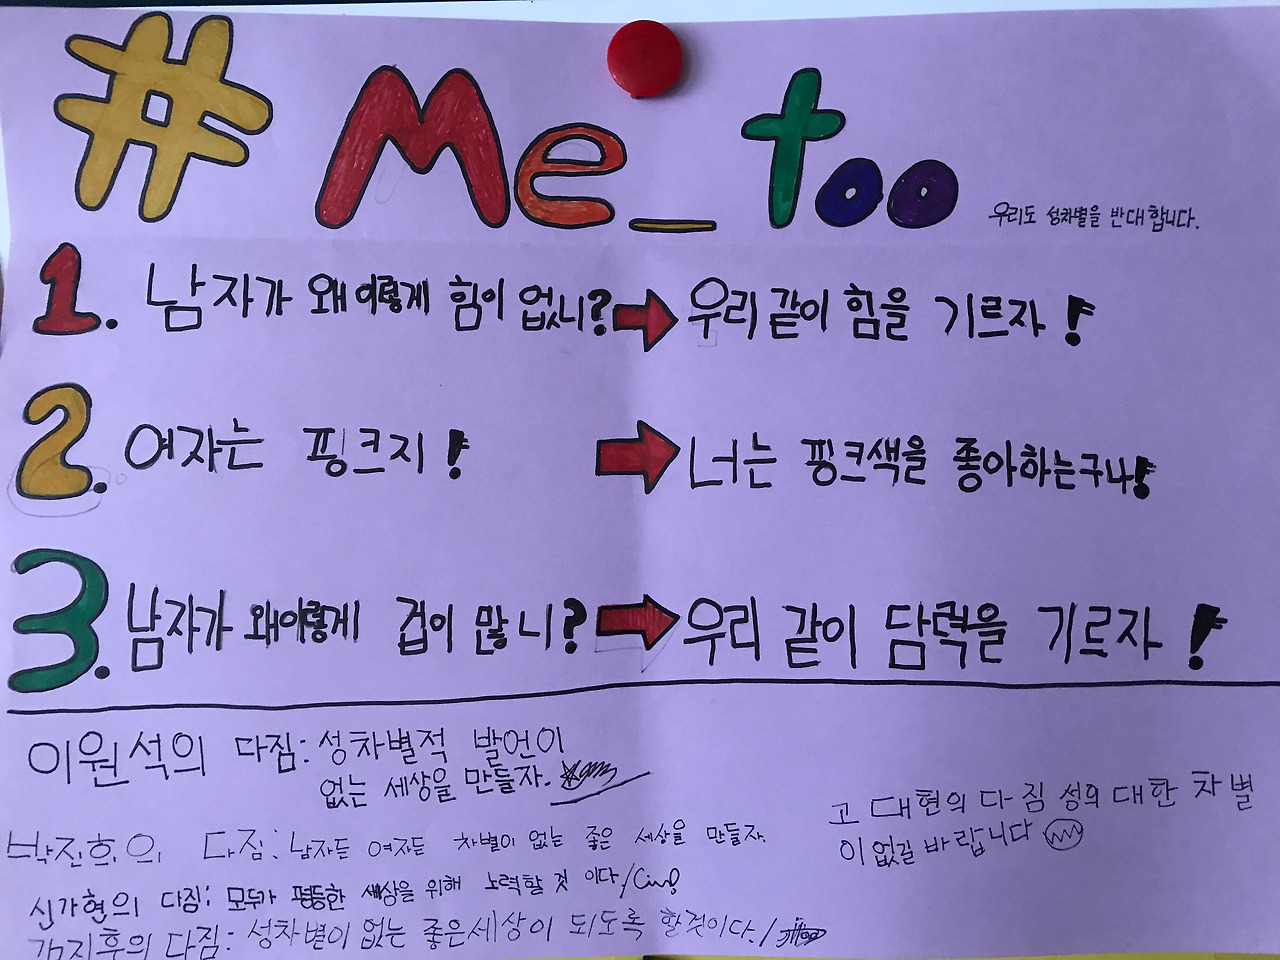 #Me_too
우리도 성차별을 반대합니다.
1. 남자가 왜 이렇게 힘이 없니? → 우리 같이 힘을 기르자!
2. 여자는 핑크지! → 너는 핑크색을 좋아하는구나!
3. 남자가 왜 이렇게 겁이 많니? → 우리 같이 담력을 기르자!
이원석의 다짐: 성차별적 발언이
없는 세상을 만들자.
박진희의 다짐: 남자든 여자든 차별이 없는 좋은 세상을 만들자.
신가현의 다짐: 모두가 평등한 세상을 위해 노력할 것 이다/
김지후의 다짐: 성차별이 없는 좋은세상이 되도록 할것이다./
고대현의 다짐 성의 대한 차별
이 없길 바랍니다